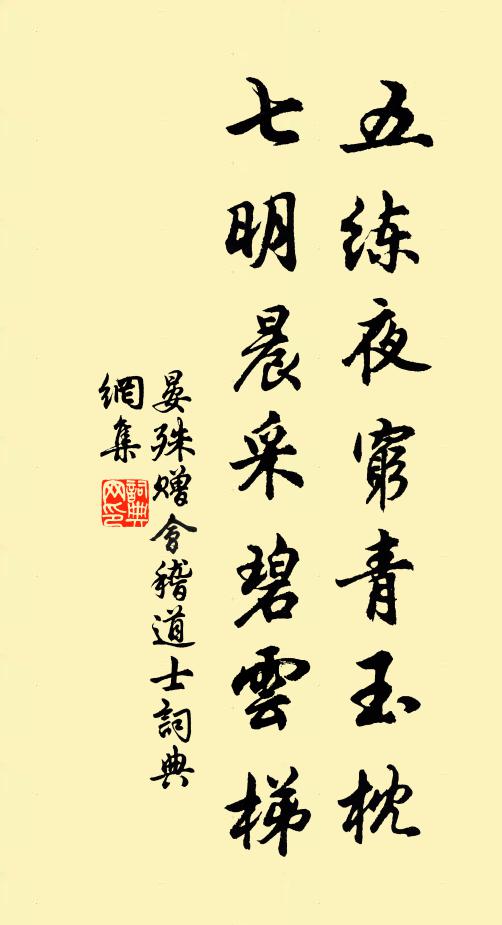 五练夜窮青玉枕
七明晨采碧雲梯
晏殊赠會稽道士詞典
網集
詞典網印